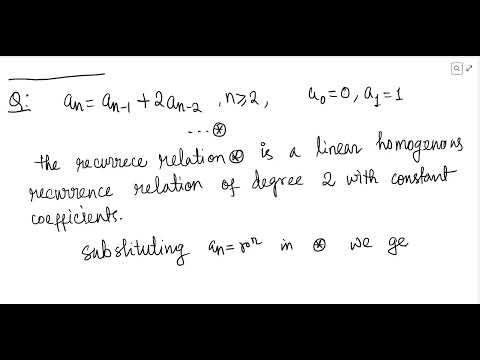 Q: aₙ = aₙ₋₁ + 2aₙ₋₂ , n≥2 , a₀=0, a₁=1
...⊛
the recurrece relation ⊛ is a linear homogenous
recurrence relation of degree 2 with constant
coefficients.
Substituting aₙ = rⁿ in ⊛ we ge